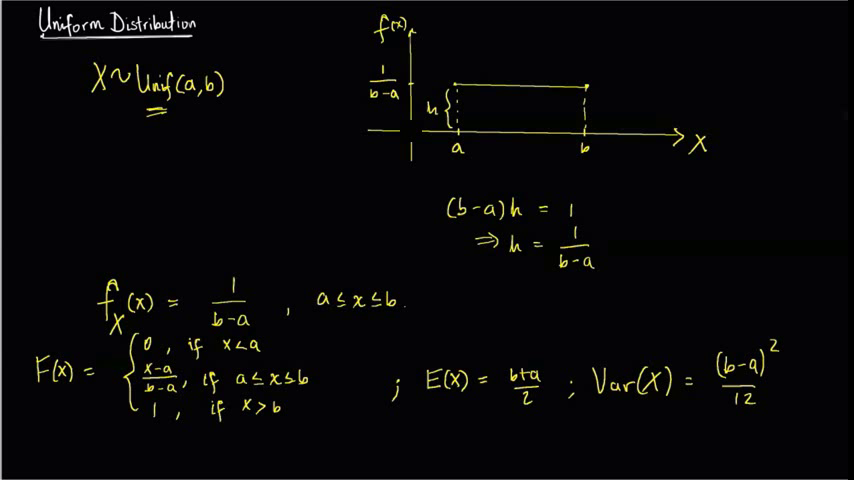 Uniform Distribution
X ~ Unif(a,b)
f(x)
1/(b-a)
h {
a
b
X
(b-a)h = 1
⇒ h = 1/(b-a)
f_X(x) = 1/(b-a) , a ≤ x ≤ b.
F(x) = { 0 , if x<a
(x-a)/(b-a) , if a ≤ x ≤ b
1 , if x > b
; E(X) = (b+a)/2 ; Var(X) = (b-a)^2/12